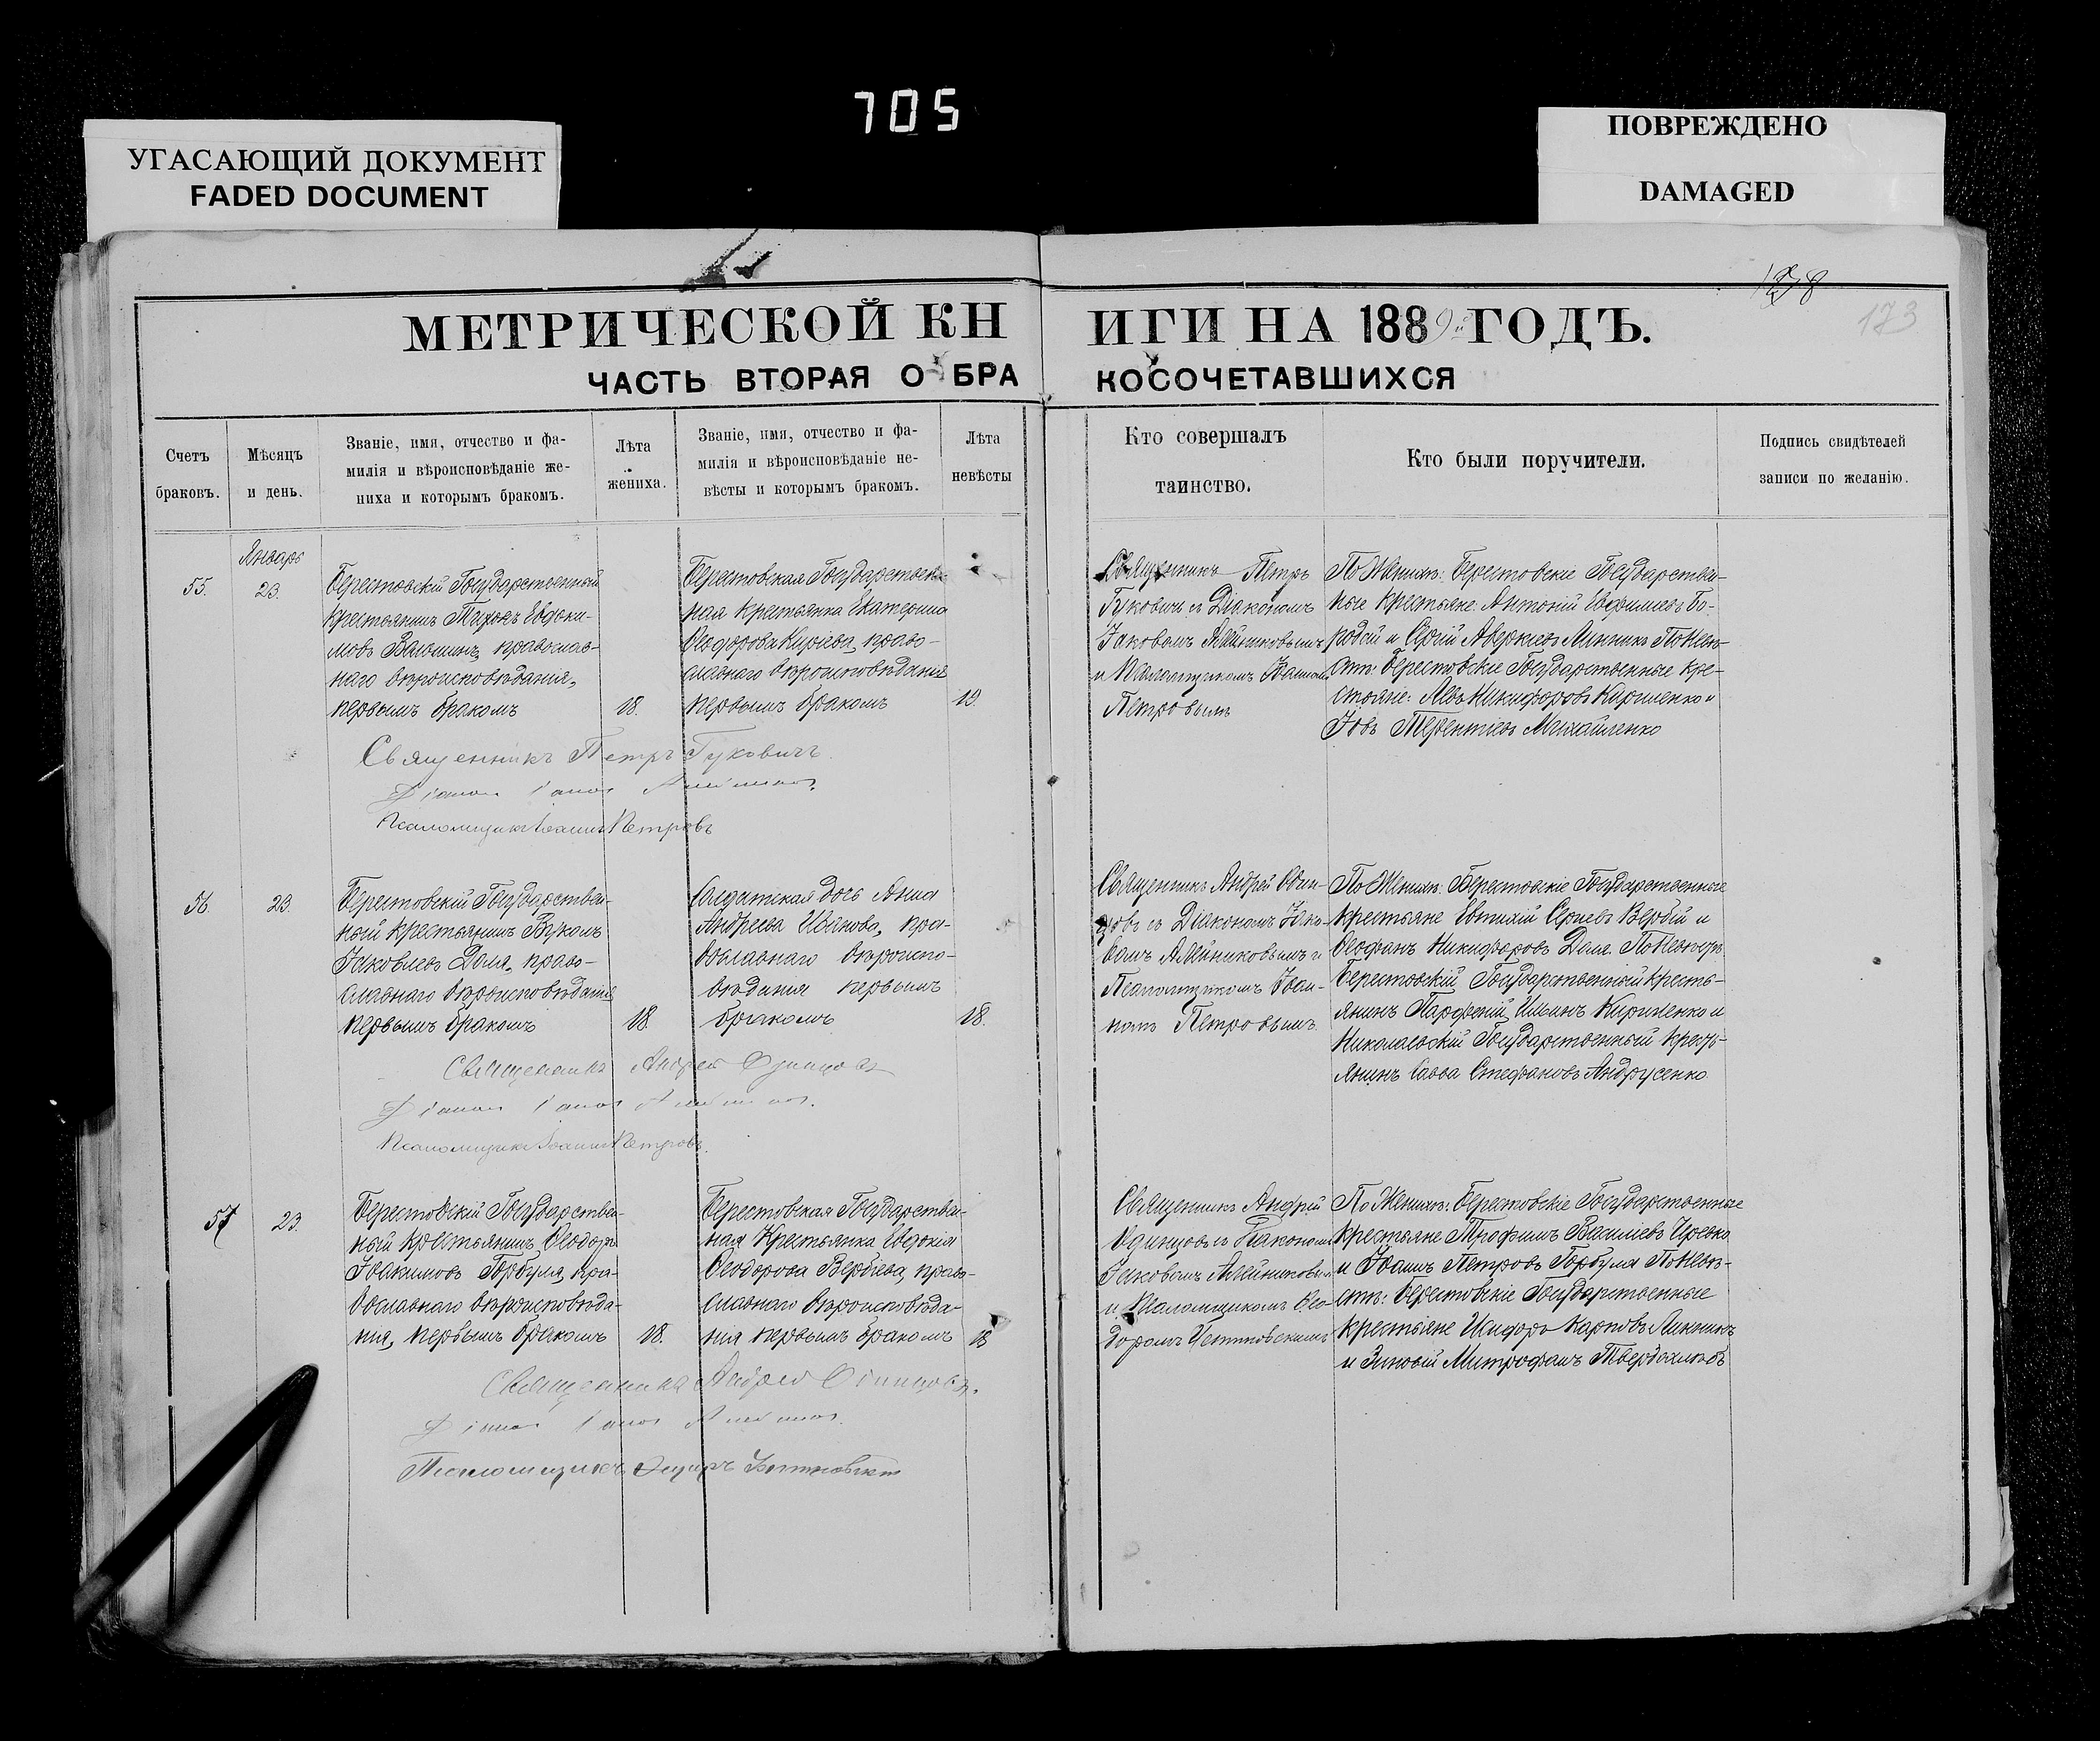 705
УГАСАЮЩИЙ ДОКУМЕНТ
FADED DOCUMENT
ПОВРЕЖДЕНО
DAMAGED
173
МЕТРИЧЕСКОЙ КНИГИ НА 1889й ГОДЪ.
ЧАСТЬ ВТОРАЯ О БРАКОСОЧЕТАВШИХСЯ
Счетъ
браковъ.
Мѣсяцъ
и день.
Званіе, имя, отчество и фа-
милія и вѣроисповѣданіе же-
ниха и которымъ бракомъ.
Лѣта
жениха.
Званіе, имя, отчество и фа-
милія и вѣроисповѣданіе не-
вѣсты и которымъ бракомъ.
Лѣта
невѣсты
Кто совершалъ
таинство.
Кто были поручители.
Подпись свидѣтелей
записи по желанію.
55.
Январь
23.
Берестовскій Государственный
крестьянинъ Евдоки-
мовъ православ-
наго вѣроисповѣданія,
первымъ бракомъ
18.
Берестовская Государствен-
ная крестьянка Екатерина
Ѳеодорова право-
славнаго вѣроисповѣданія
первымъ бракомъ
19.
Священникъ Петръ
Гуковичъ съ Діакономъ
Іаковомъ Алейниковымъ
и Псаломщикомъ Іоанномъ
Петровымъ
По Женихѣ: Берестовскіе Государствен-
ные крестьяне: Антоній Евфиміевъ Бо-
родай и Сергій Аверкіевъ Линникъ По Невѣ-
стѣ: Берестовскіе Государственные кре-
стьяне: Левъ Никифоровъ и
Іовъ Терентіевъ Михайленко
Священникъ Петръ Гуковичъ.
Діаконъ Іаковъ Алейниковъ.
Псаломщикъ Іоаннъ Петровъ
56.
23.
Берестовскій Государствен-
ный крестьянинъ Вуколъ
Іаковлевъ Доля, право-
славнаго вѣроисповѣданія
первымъ бракомъ
18.
Солдатская дочь Анна
Андреева Иванова, пра-
вославнаго вѣроиспо-
вѣданія первымъ
бракомъ
18.
Священникъ Андрей Один-
цовъ съ Діакономъ Іако-
вомъ Алейниковымъ и
Псаломщикомъ Іоан-
номъ Петровымъ.
По Женихѣ: Берестовскіе Государственные
крестьяне Евтихій Сергіевъ Вербій и
Ѳеофанъ Никифоровъ Доля. По Невѣстѣ
Берестовскій Государственный кресть-
янинъ Парфеній Ильинъ Кириленко и
Николаевскій Государственный кресть-
янинъ Савва Стефановъ Андрусенко
Священникъ Андрей Одинцовъ
Діаконъ Іаковъ Алейниковъ.
Псаломщикъ Іоаннъ Петровъ.
57
23.
Берестовскій Государствен-
ный крестьянинъ Ѳеодоръ
Іоакимовъ Горбуля, пра-
вославнаго вѣроисповѣда-
нія, первымъ бракомъ
18.
Берестовская Государствен-
ная Крестьянка Евдокія
Ѳеодорова Вербіева, право-
славнаго вѣроисповѣда-
нія первымъ бракомъ
18
Священникъ Андрей
Одинцовъ съ Діакономъ
Іаковомъ Алейниковымъ
и Псаломщикомъ Ѳео-
доромъ
По Женихѣ: Берестовскіе Государственные
крестьяне Трофимъ Василіевъ
и Іоаннъ Петровъ Горбуля По Невѣ-
стѣ: Берестовскіе Государственные
крестьяне Исидоръ Карповъ Линникъ
и Зиновій Митрофановъ Твердохлѣбъ
Священникъ Андрей Одинцовъ.
Діаконъ Іаковъ Алейниковъ.
Псаломщикъ Ѳеодоръ